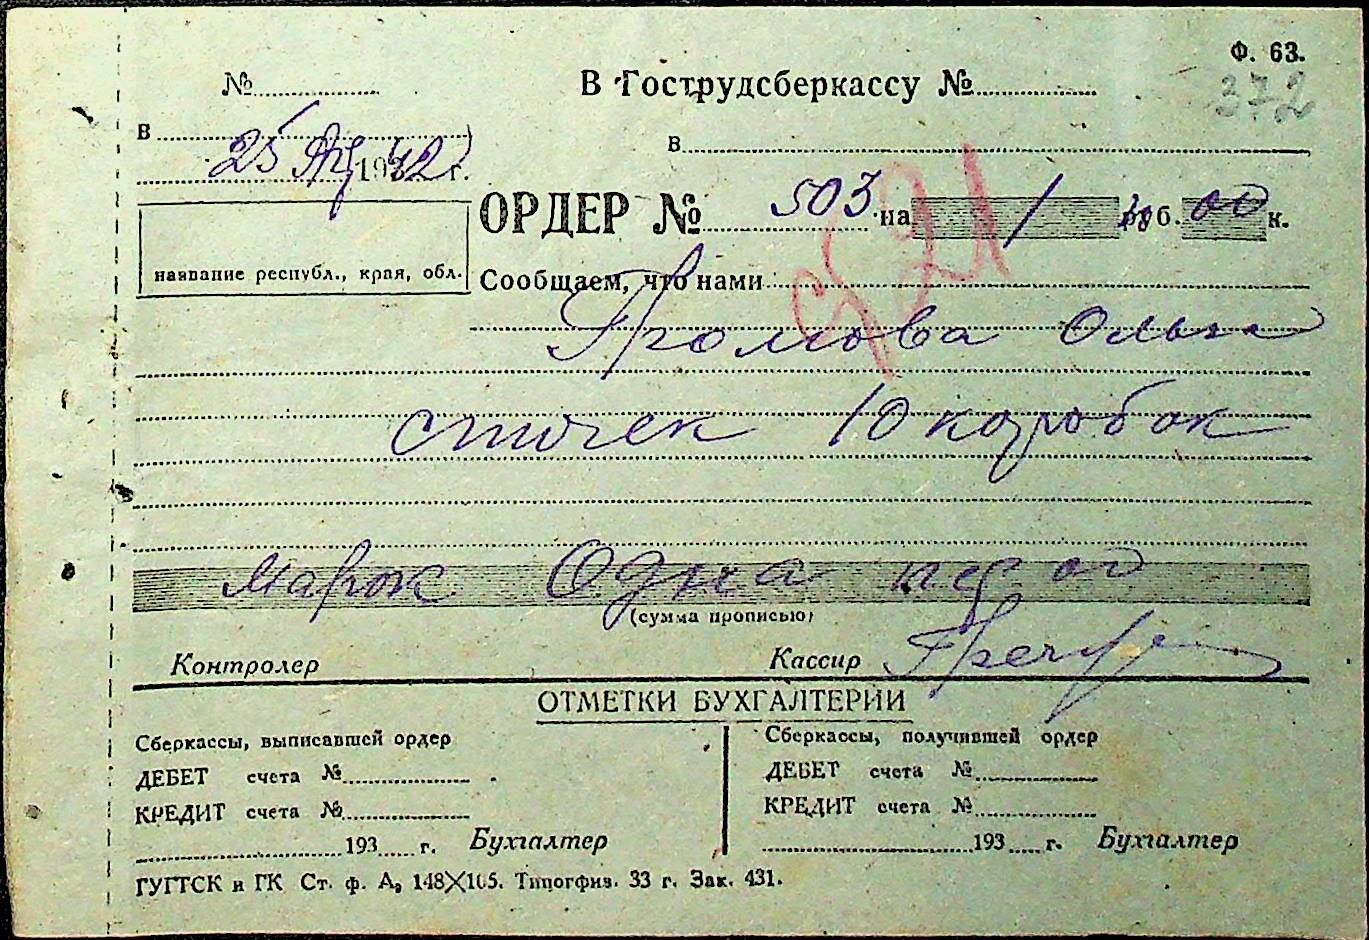 Ф. 63.
372
№
В Гострудсберкассу №
в
в
25 Апр 1942 г.
ОРДЕР № 503 на 1 руб. 00 к.
название республ., края, обл.
Сообщаем, что нами
Громова Ольга
спичек 10 коробок
марок Одна 00
(сумма прописью)
Контролер
Кассир
ОТМЕТКИ БУХГАЛТЕРИИ
Сберкассы, выписавшей ордер
ДЕБЕТ счета №
КРЕДИТ счета №
193 г. Бухгалтер
Сберкассы, получившей ордер
ДЕБЕТ счета №
КРЕДИТ счета №
193 г. Бухгалтер
ГУГТСК и ГК Ст. ф. А, 148X105. Типогфиз. 33 г. Зак. 431.